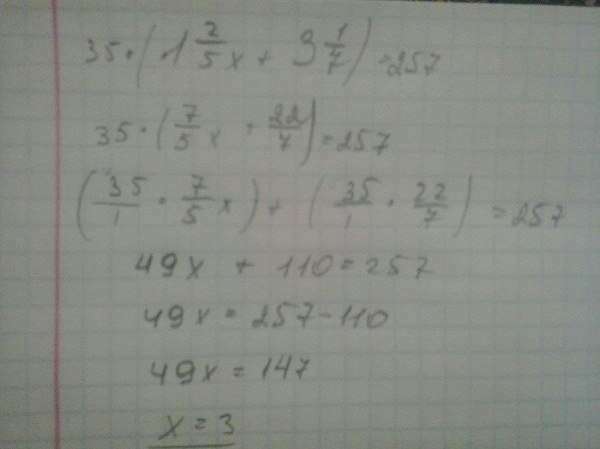 35·(1 2/5 x + 3 1/7) = 257
35·(7/5 x + 22/7) = 257
(35/1 · 7/5 x) + (35/1 · 22/7) = 257
49x + 110 = 257
49x = 257 - 110
49x = 147
x = 3